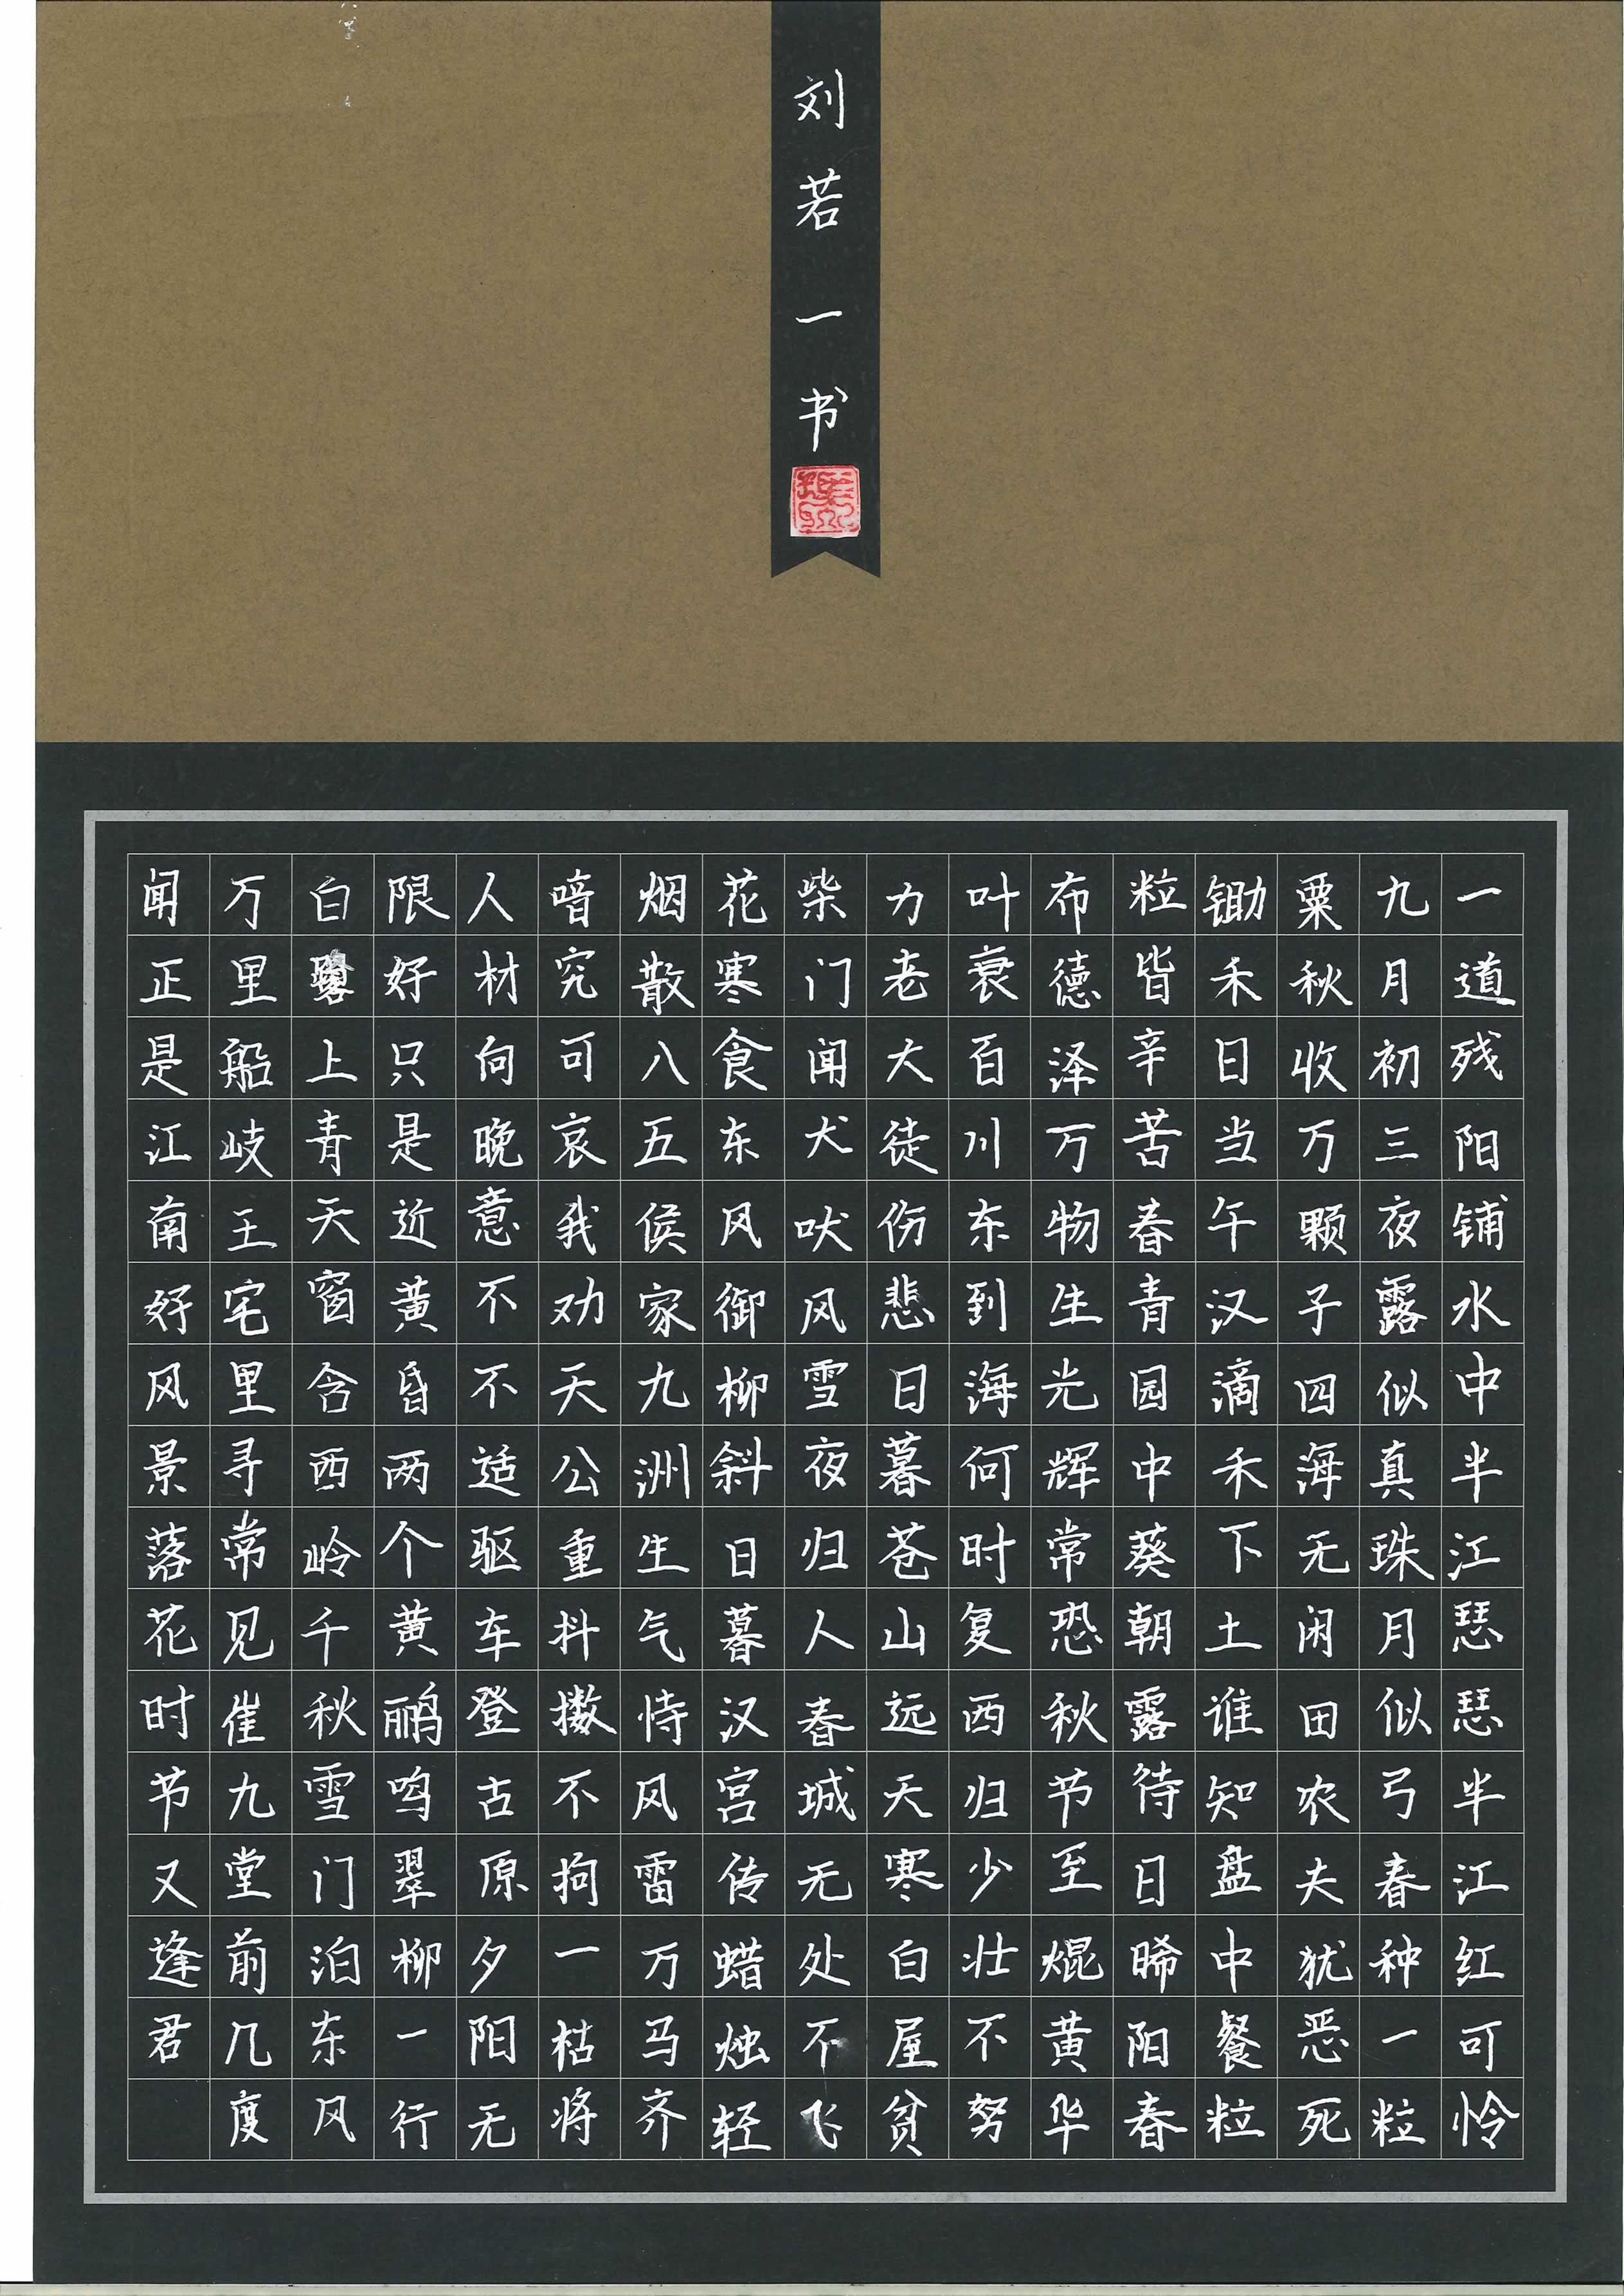 刘若一书
一道残阳铺水中半江瑟瑟半江红可怜
九月初三夜露似真珠月似弓春种一粒
粟秋收万颗子四海无闲田农夫犹恶死
锄禾日当午汉滴禾下土谁知盘中餐粒
粒皆辛苦春青园中葵朝露待日晞阳春
布德泽万物生光辉常恐秋节至焜黄华
叶衰百川东到海何时复西归少壮不努
力老大徒伤悲日暮苍山远天寒白屋贫
柴门闻犬吠风雪夜归人春城无处不飞
花寒食东风御柳斜日暮汉宫传蜡烛轻
烟散八五侯家九洲生气恃风雷万马齐
喑究可哀我劝天公重抖擞不拘一枯将
人材向晚意不不适驱车登古原夕阳无
限好只是近黄昏两个黄鹂鸣翠柳一行
白上青天窗含西岭千秋雪门泊东风
万里船岐王宅里寻常见崔九堂前几度
闻正是江南好风景落花时节又逢君